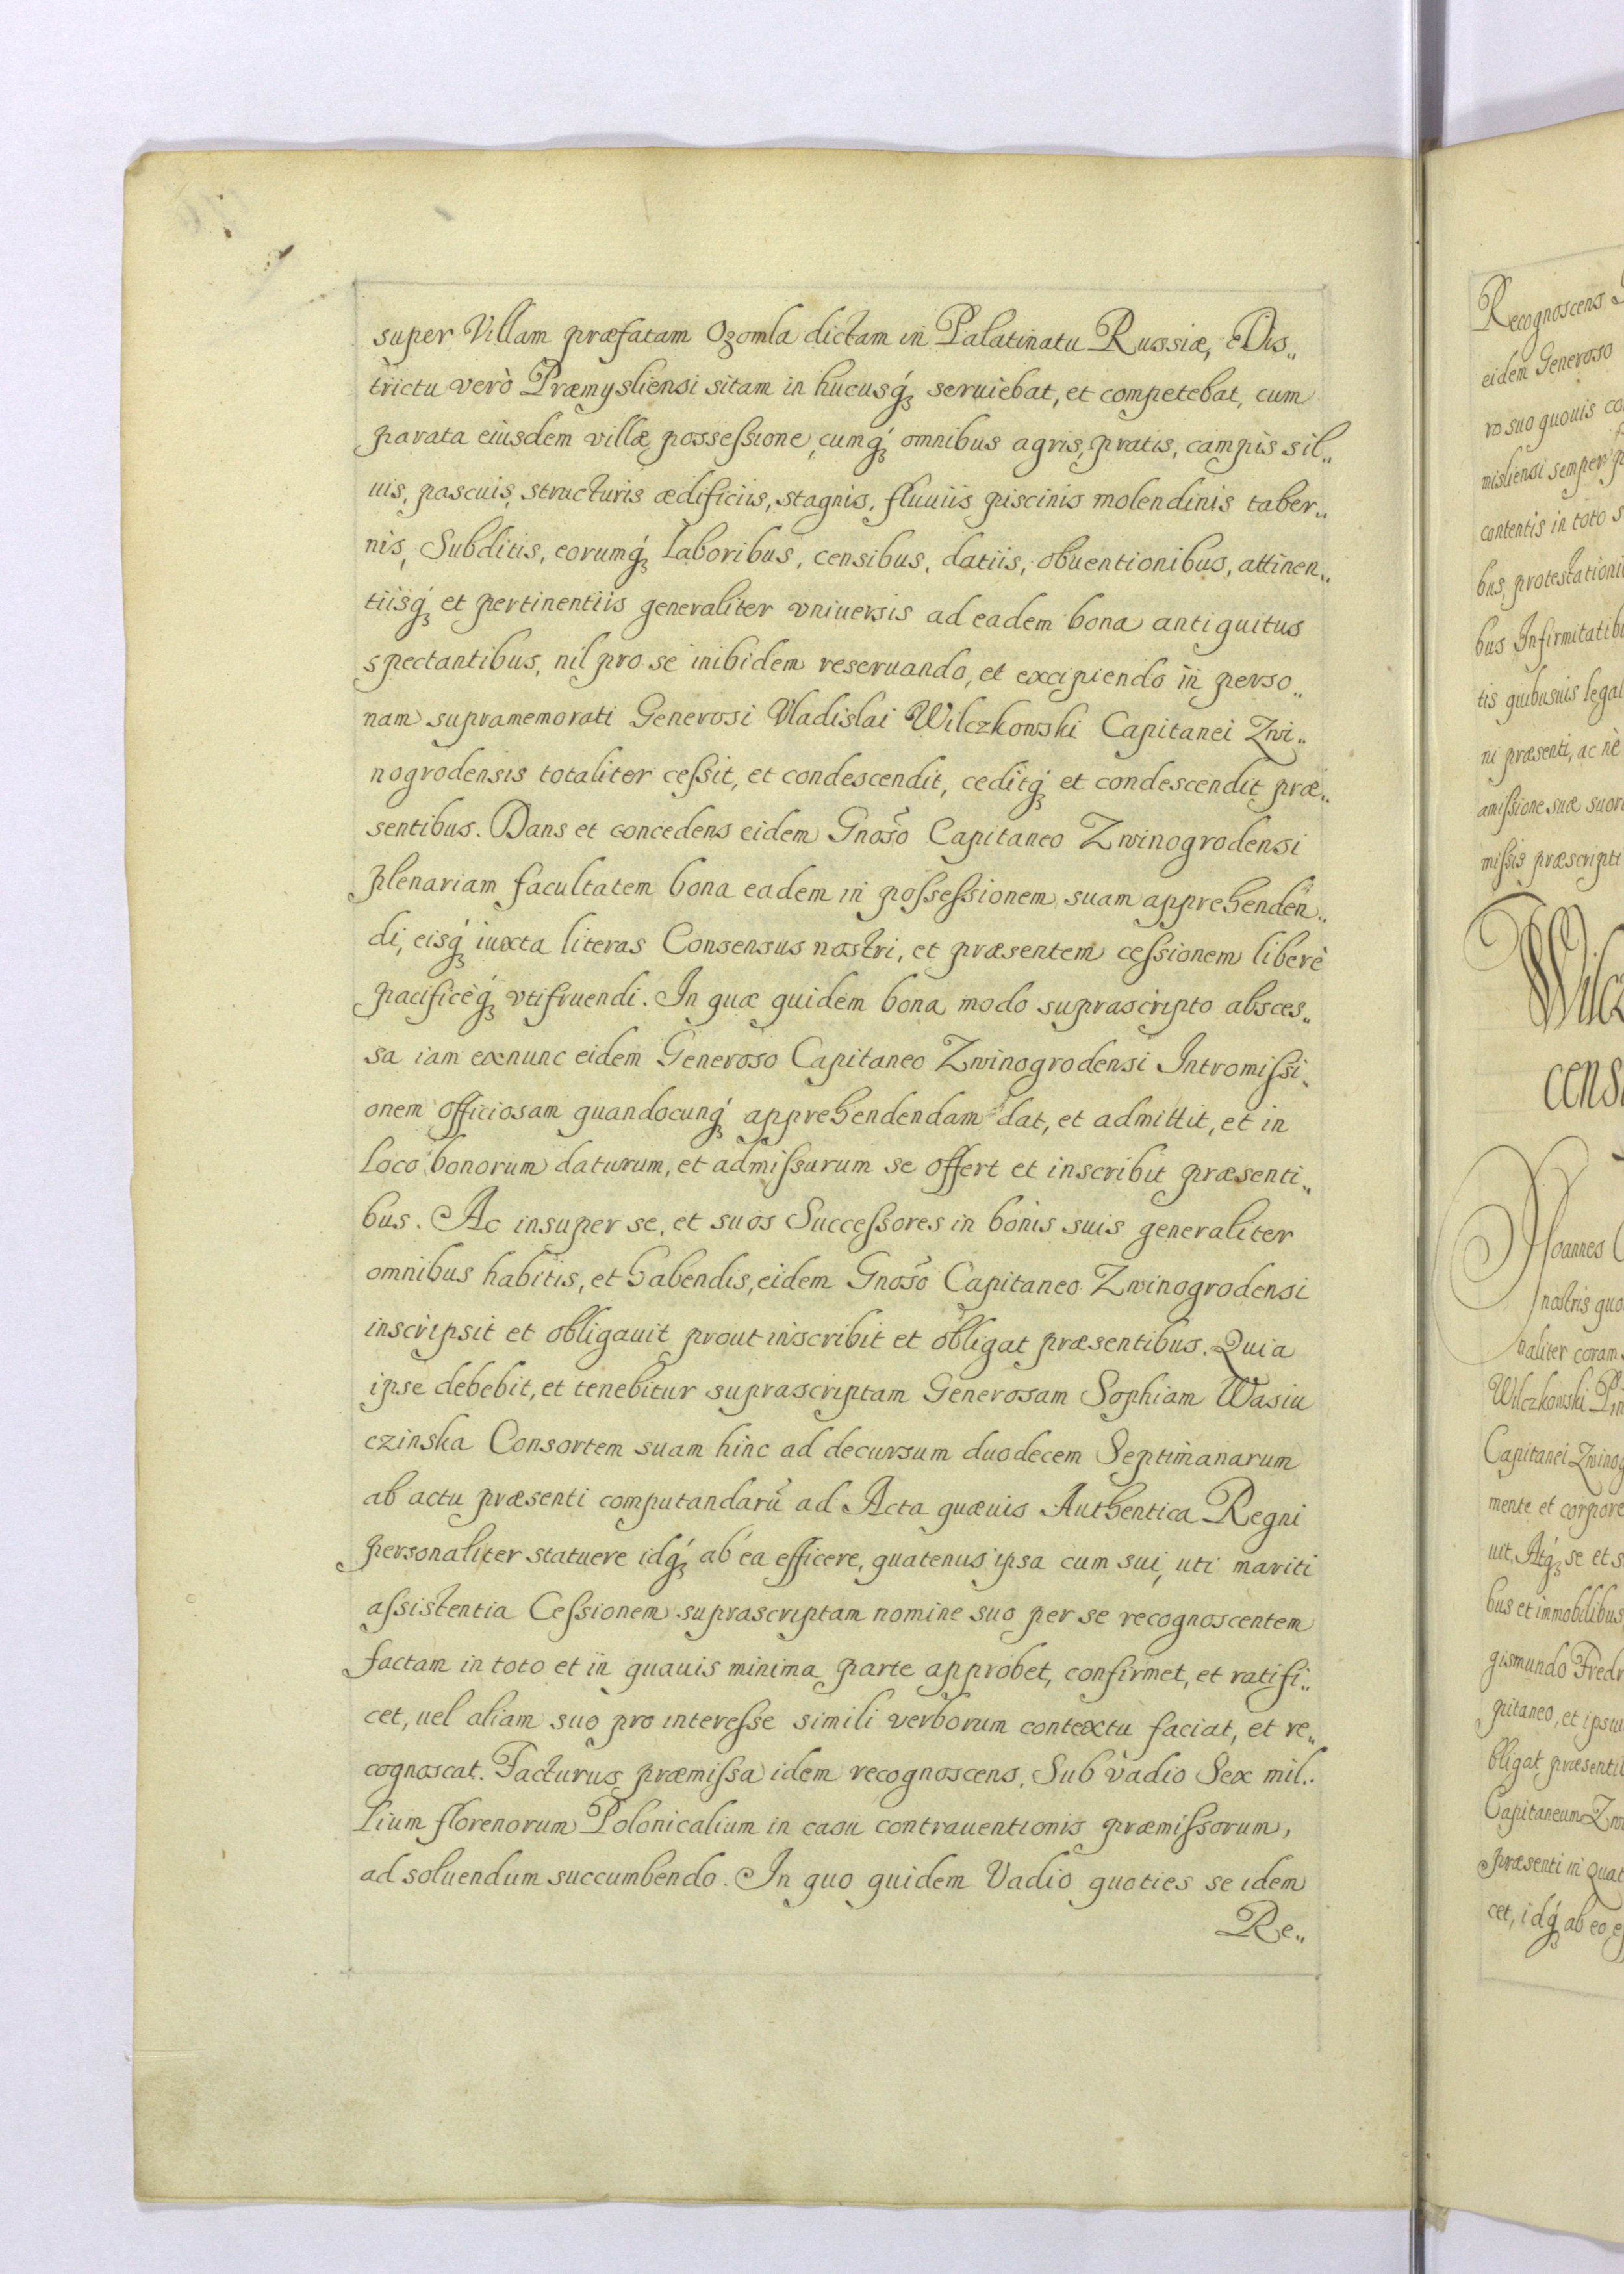 super Villam præfatam Ozomla dictam in Palatinatu Russiæ, Dis„
trictu verò Præmysliensi sitam in hucusq́ꝫ seruiebat, et competebat, cum
parata eiusdem villæ possessione, cumq́ꝫ omnibus agris, pratis, campis sil„
uis, pascuis, structuris ædificiis, stagnis, fluuiis piscinis molendinis taber„
nis, Subditis, eorumq́ꝫ laboribus, censibus, datiis, obuentionibus, attinen„
tiisq́ꝫ et pertinentiis generaliter vniuersis ad eadem bona antiquitus
spectantibus, nil pro se inibidem reseruando, et excipiendo in perso„
nam supramemorati Generosi Vladislai Wilczkowski Capitanei Zwi„
nogrodensis totaliter cessit, et condescendit, ceditq́ꝫ et condescendit præ„
sentibus. Dans et concedens eidem Gnoso Capitaneo Zwinogrodensi
plenariam facultatem bona eadem in possessionem suam apprehenden„
di, eisq́ꝫ iuxta literas Consensus nostri, et præsentem cessionem liberè
pacificèq́ꝫ vtifruendi. In quæ quidem bona modo suprascripto absces„
sa iam exnunc eidem Generoso Capitaneo Zwinogrodensi Intromissi„
onem officiosam quandocunq́ꝫ apprehendendam dat, et admittit, et in
loco bonorum daturum, et admissurum se offert et inscribit præsenti„
bus. Ac insuper se, et suos Successores in bonis suis generaliter
omnibus habitis, et habendis, eidem Gnoso Capitaneo Zwinogrodensi
inscripsit et obligauit prout inscribit et obligat præsentibus. Quia
ipse debebit, et tenebitur suprascriptam Generosam Sophiam Wasiu
czinska Consortem suam hinc ad decursum duodecem Septimanarum
ab actu præsenti computandarũ ad Acta quæuis Authentica Regni
personaliter statuere idq́ꝫ ab ea efficere, quatenus ipsa cum sui, uti mariti
assistentia Cessionem suprascriptam nomine suo per se recognoscentem
factam in toto et in quauis minima parte approbet, confirmet, et ratifi„
cet, uel aliam suo pro interesse simili verborum contextu faciat, et re„
cognoscat. Facturus præmissa idem recognoscens, Sub vadio Sex mil„
lium florenorum Polonicalium in casu contrauentionis præmissorum,
ad soluendum succumbendo. In quo quidem Vadio quoties se idem
Re„
Recognoscens
eidem Generoso
ro suo quouis
misliensi semper
contentis in toto
bus, protestationi
bus Infirmitatib
tis quibusuis legal
ni præsenti, ac nè
amissione suæ suor
missis præscripti
Wilc
cens
Joannes
nostris quo
naliter coram
Wilczkowski
Capitanei Zwinog
mente et corpore
uit, Atq́ꝫ se et s
bus et immobilibus
gismundo Fredr
pitaneo, et ipsiu
bligat præsentib
Capitaneum Zwi
præsenti in Quat
cet, idq́ꝫ ab eo